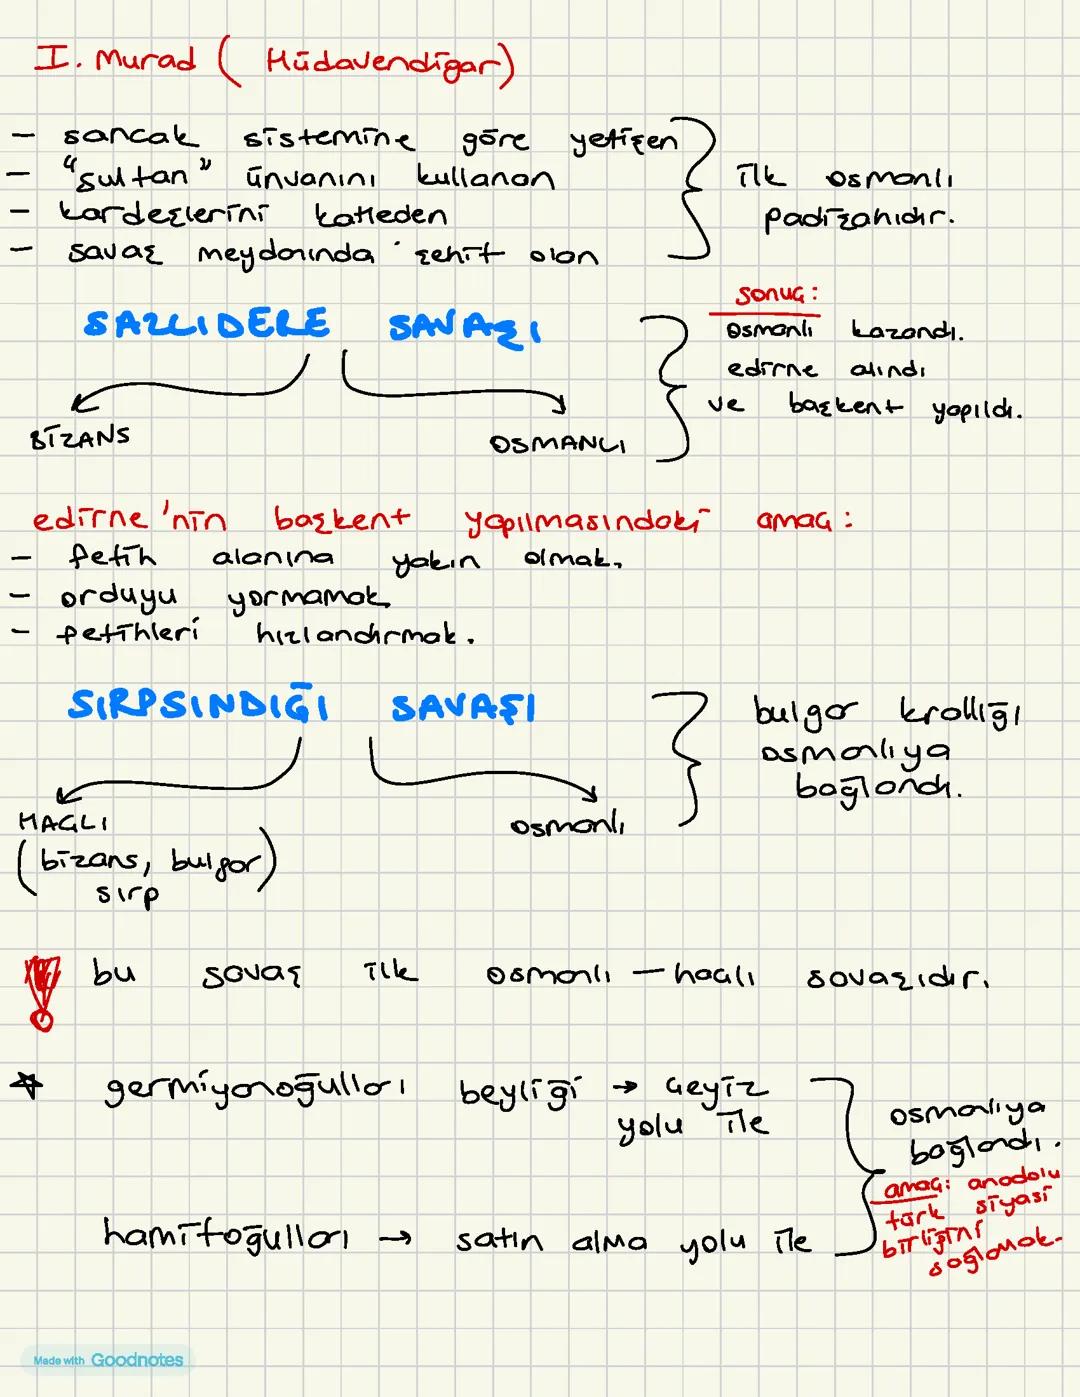 I. Murad ( Hüdavendigar)
- sancak sistemine göre yetişen
- "sultan" ünvanını kullanan
- kardeşlerini katleden
- savaş meydanında şehit olan
ilk osmanlı
padişahıdır.
SAZLIDERE SAVAŞI
BİZANS
OSMANLI
sonuç:
osmanlı kazandı.
edirne alındı
ve başkent yapıldı.
edirne'nin başkent yapılmasındaki amaç:
- fetih alanına yakın olmak,
- orduyu yormamak
- fetihleri hızlandırmak.
SIRPSINDIĞI SAVAŞI
HAÇLI
(bizans, bulgar)
sırp
osmanlı
bulgar krallığı
osmanlıya
bağlandı.
! bu savaş ilk osmanlı - haçlı savaşıdır.
☆ germiyanoğulları beyliği → çeyiz
yolu ile
hamitoğulları → satın alma yolu ile
osmanlıya
bağlandı.
amaç: anadolu
türk siyasi
birliğini
sağlamak.
Made with Goodnotes